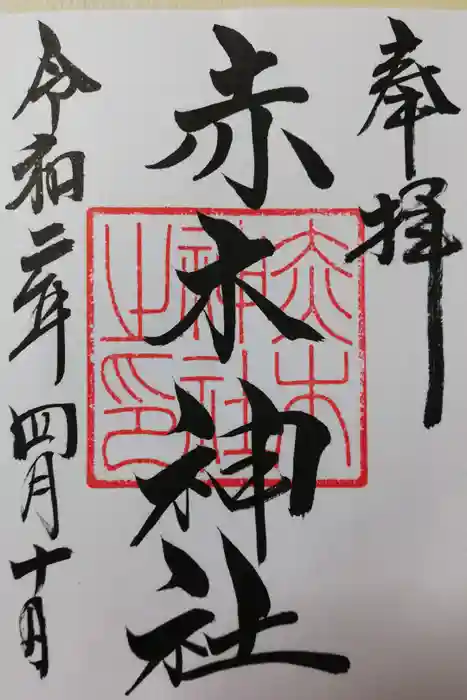 奉拝
赤木神社
赤木神社之印
令和二年四月十日